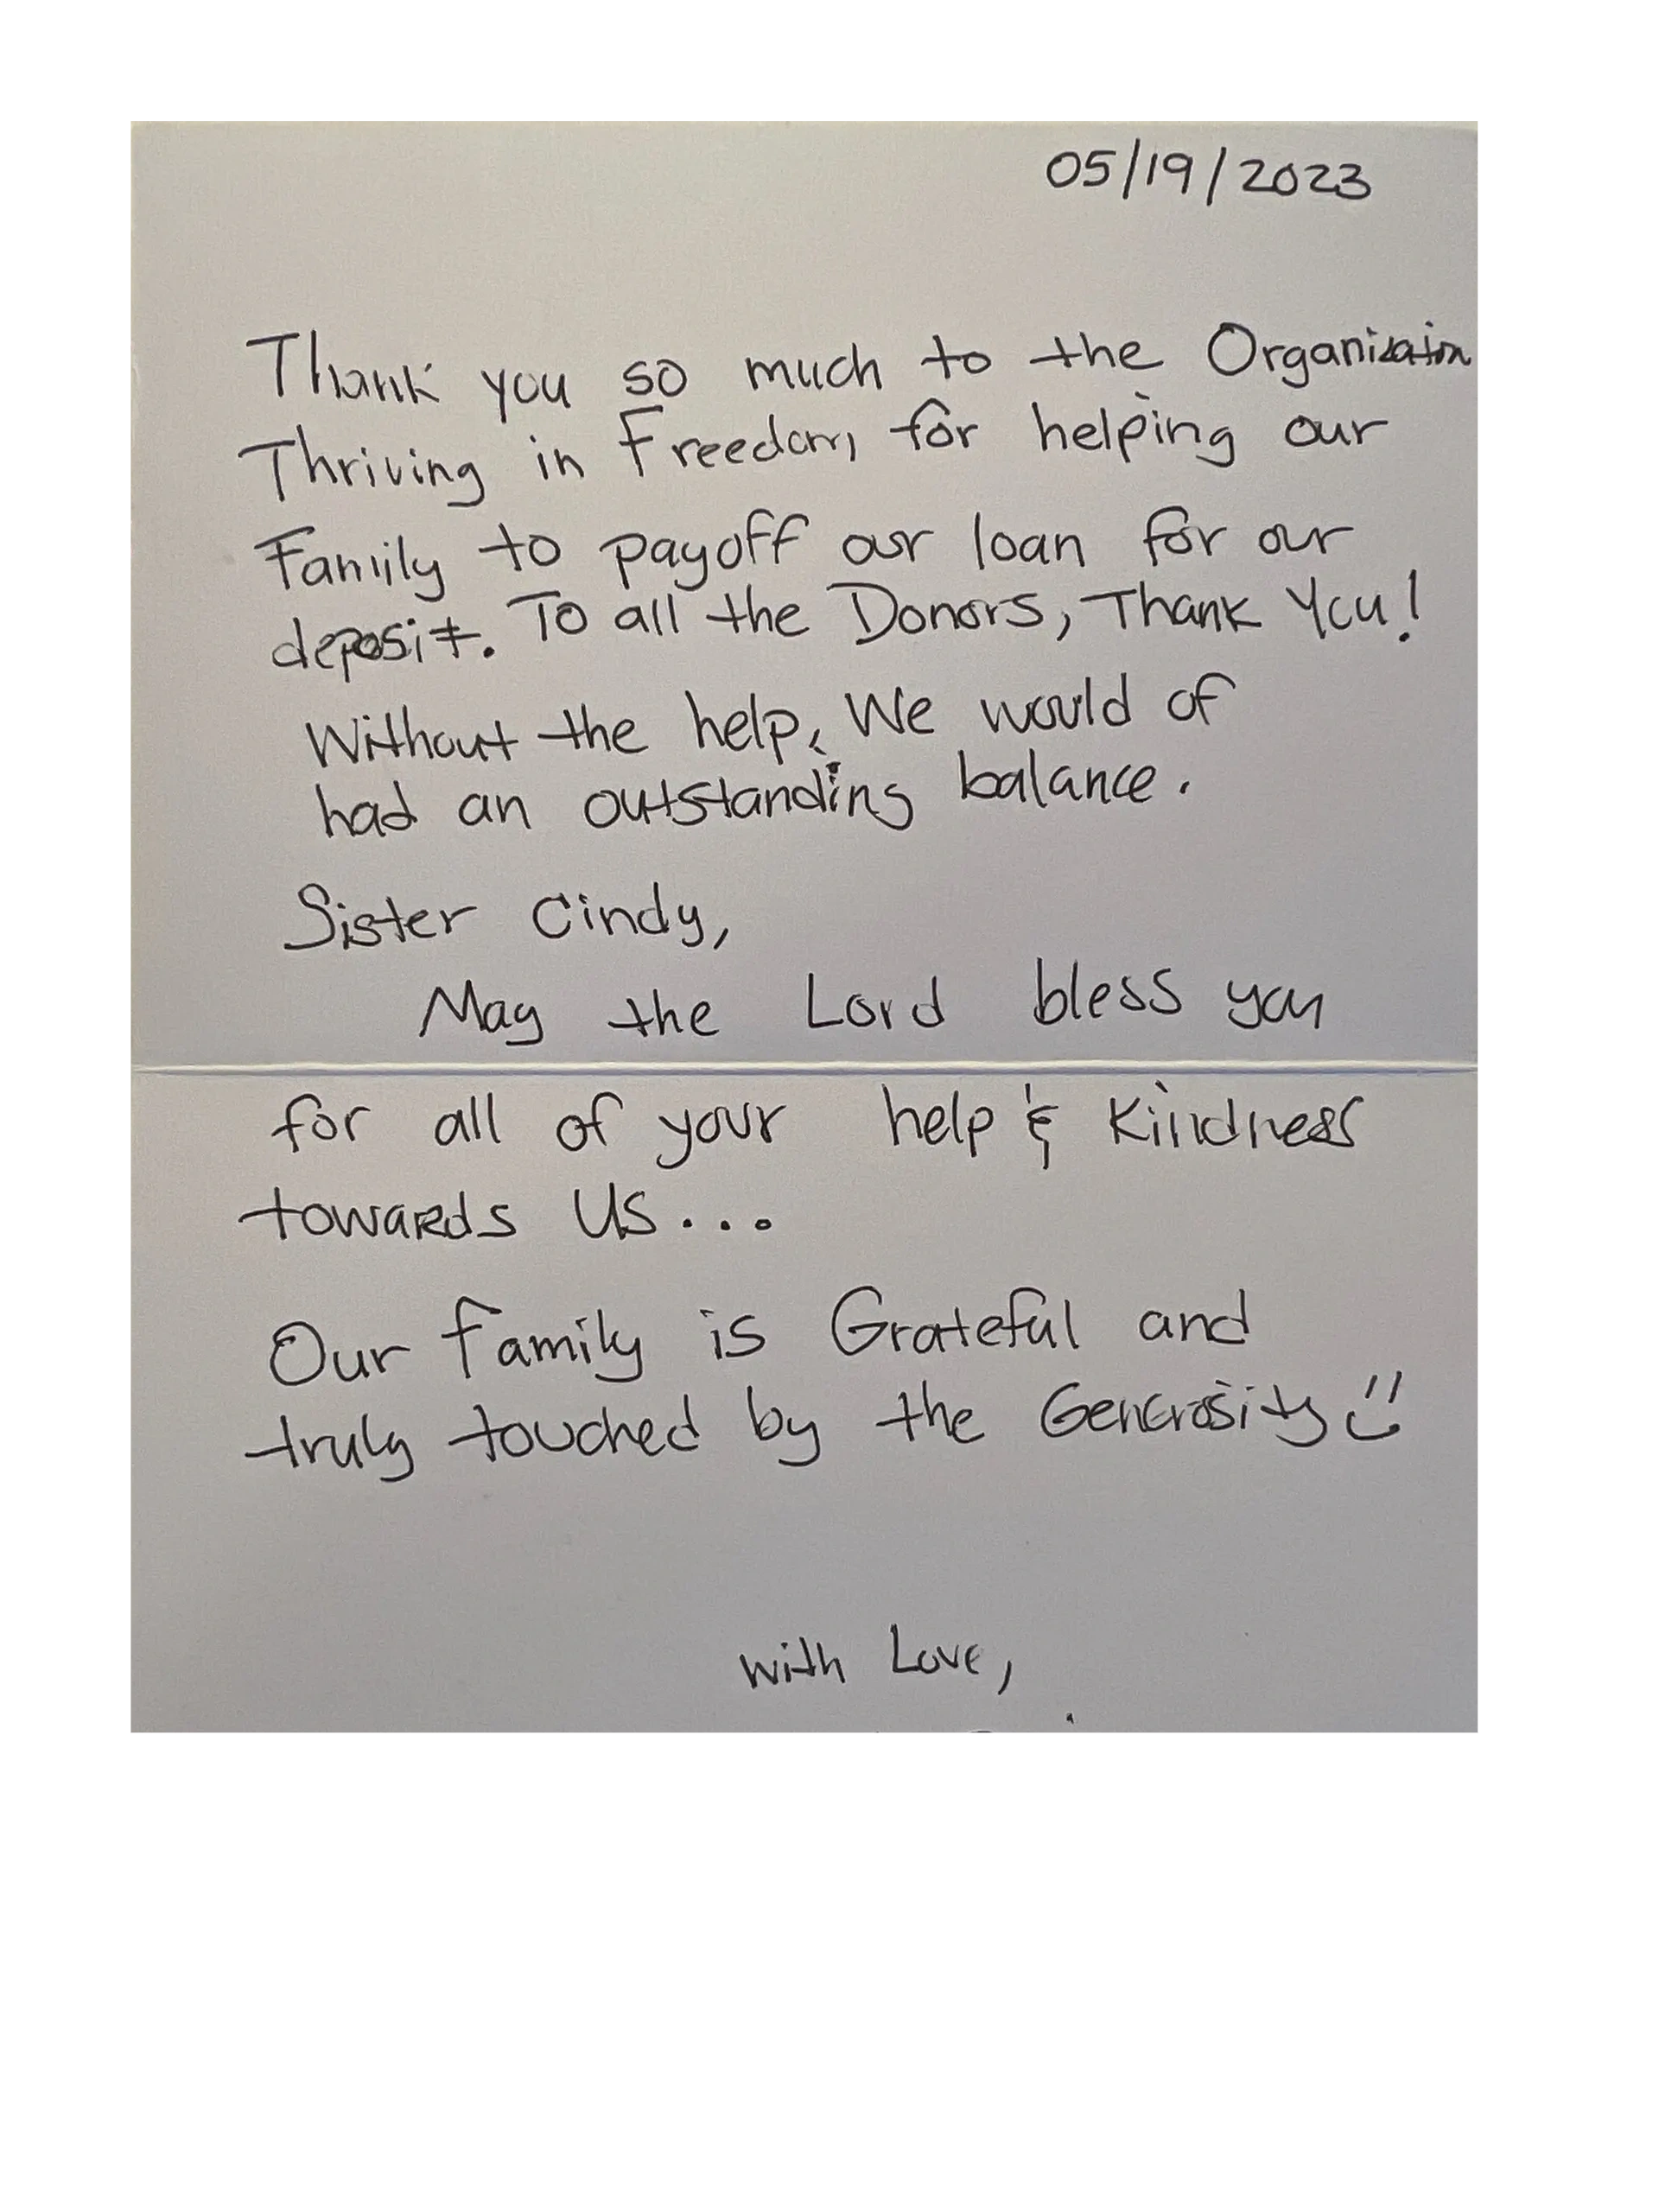 05/19/2023
Thank you so much to the Organization
Thriving in Freedom, for helping our
Family to payoff our loan for our
deposit. To all the Donors, Thank You!
Without the help, We would of
had an outstanding balance.
Sister Cindy,
May the Lord bless you
for all of your help & Kindness
towards Us...
Our family is Grateful and
truly touched by the Generosity
With Love,